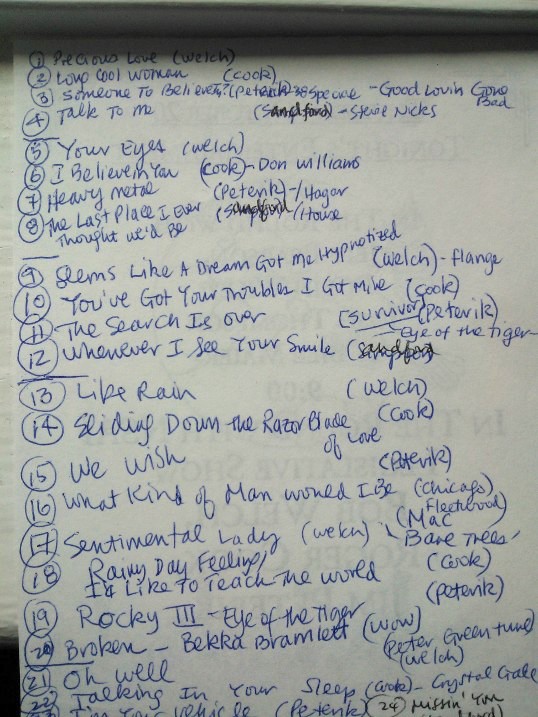 ① Precious Love (Welch)
② Long Cool Woman (Cook)
③ Someone To Believe? (Peterik) - 38 Special - Good Lovin Gone Bad
④ Talk To Me (Sandford) - Stevie Nicks
⑤ Your Eyes (Welch)
⑥ I Believe in You (Cook) - Don Williams
⑦ Heavy Metal (Peterik) - / Hagar
⑧ The Last Place I Ever (Sandford / House
Thought we'd Be
⑨ Seems Like A Dream Got Me Hypnotized (Welch) - flange
⑩ You've Got Your Troubles I Got Mine (Cook)
⑪ The Search Is Over (Survivor) (Peterik)
- Eye of the Tiger
⑫ Whenever I See Your Smile (Sandford)
⑬ Like Rain (Welch)
⑭ Sliding Down the Razor Blade of Love (Cook)
⑮ We Wish (Peterik)
⑯ What Kind of Man would I Be (Chicago)
⑰ Sentimental Lady (Welch) (Fleetwood Mac 'Bare Trees'
⑱ Rainy Day Feeling /
I'd Like To Teach the World (Cook)
⑲ Rocky III - Eye of the Tiger (Peterik)
⑳ Broken - Bekka Bramlett (Wow)
㉑ Oh Well (Peter Green tune) (Welch)
㉒ Talking In Your Sleep (Cook) - Crystal Gale
I'm Your Vehicle (Peterik) ㉔ Missin' You